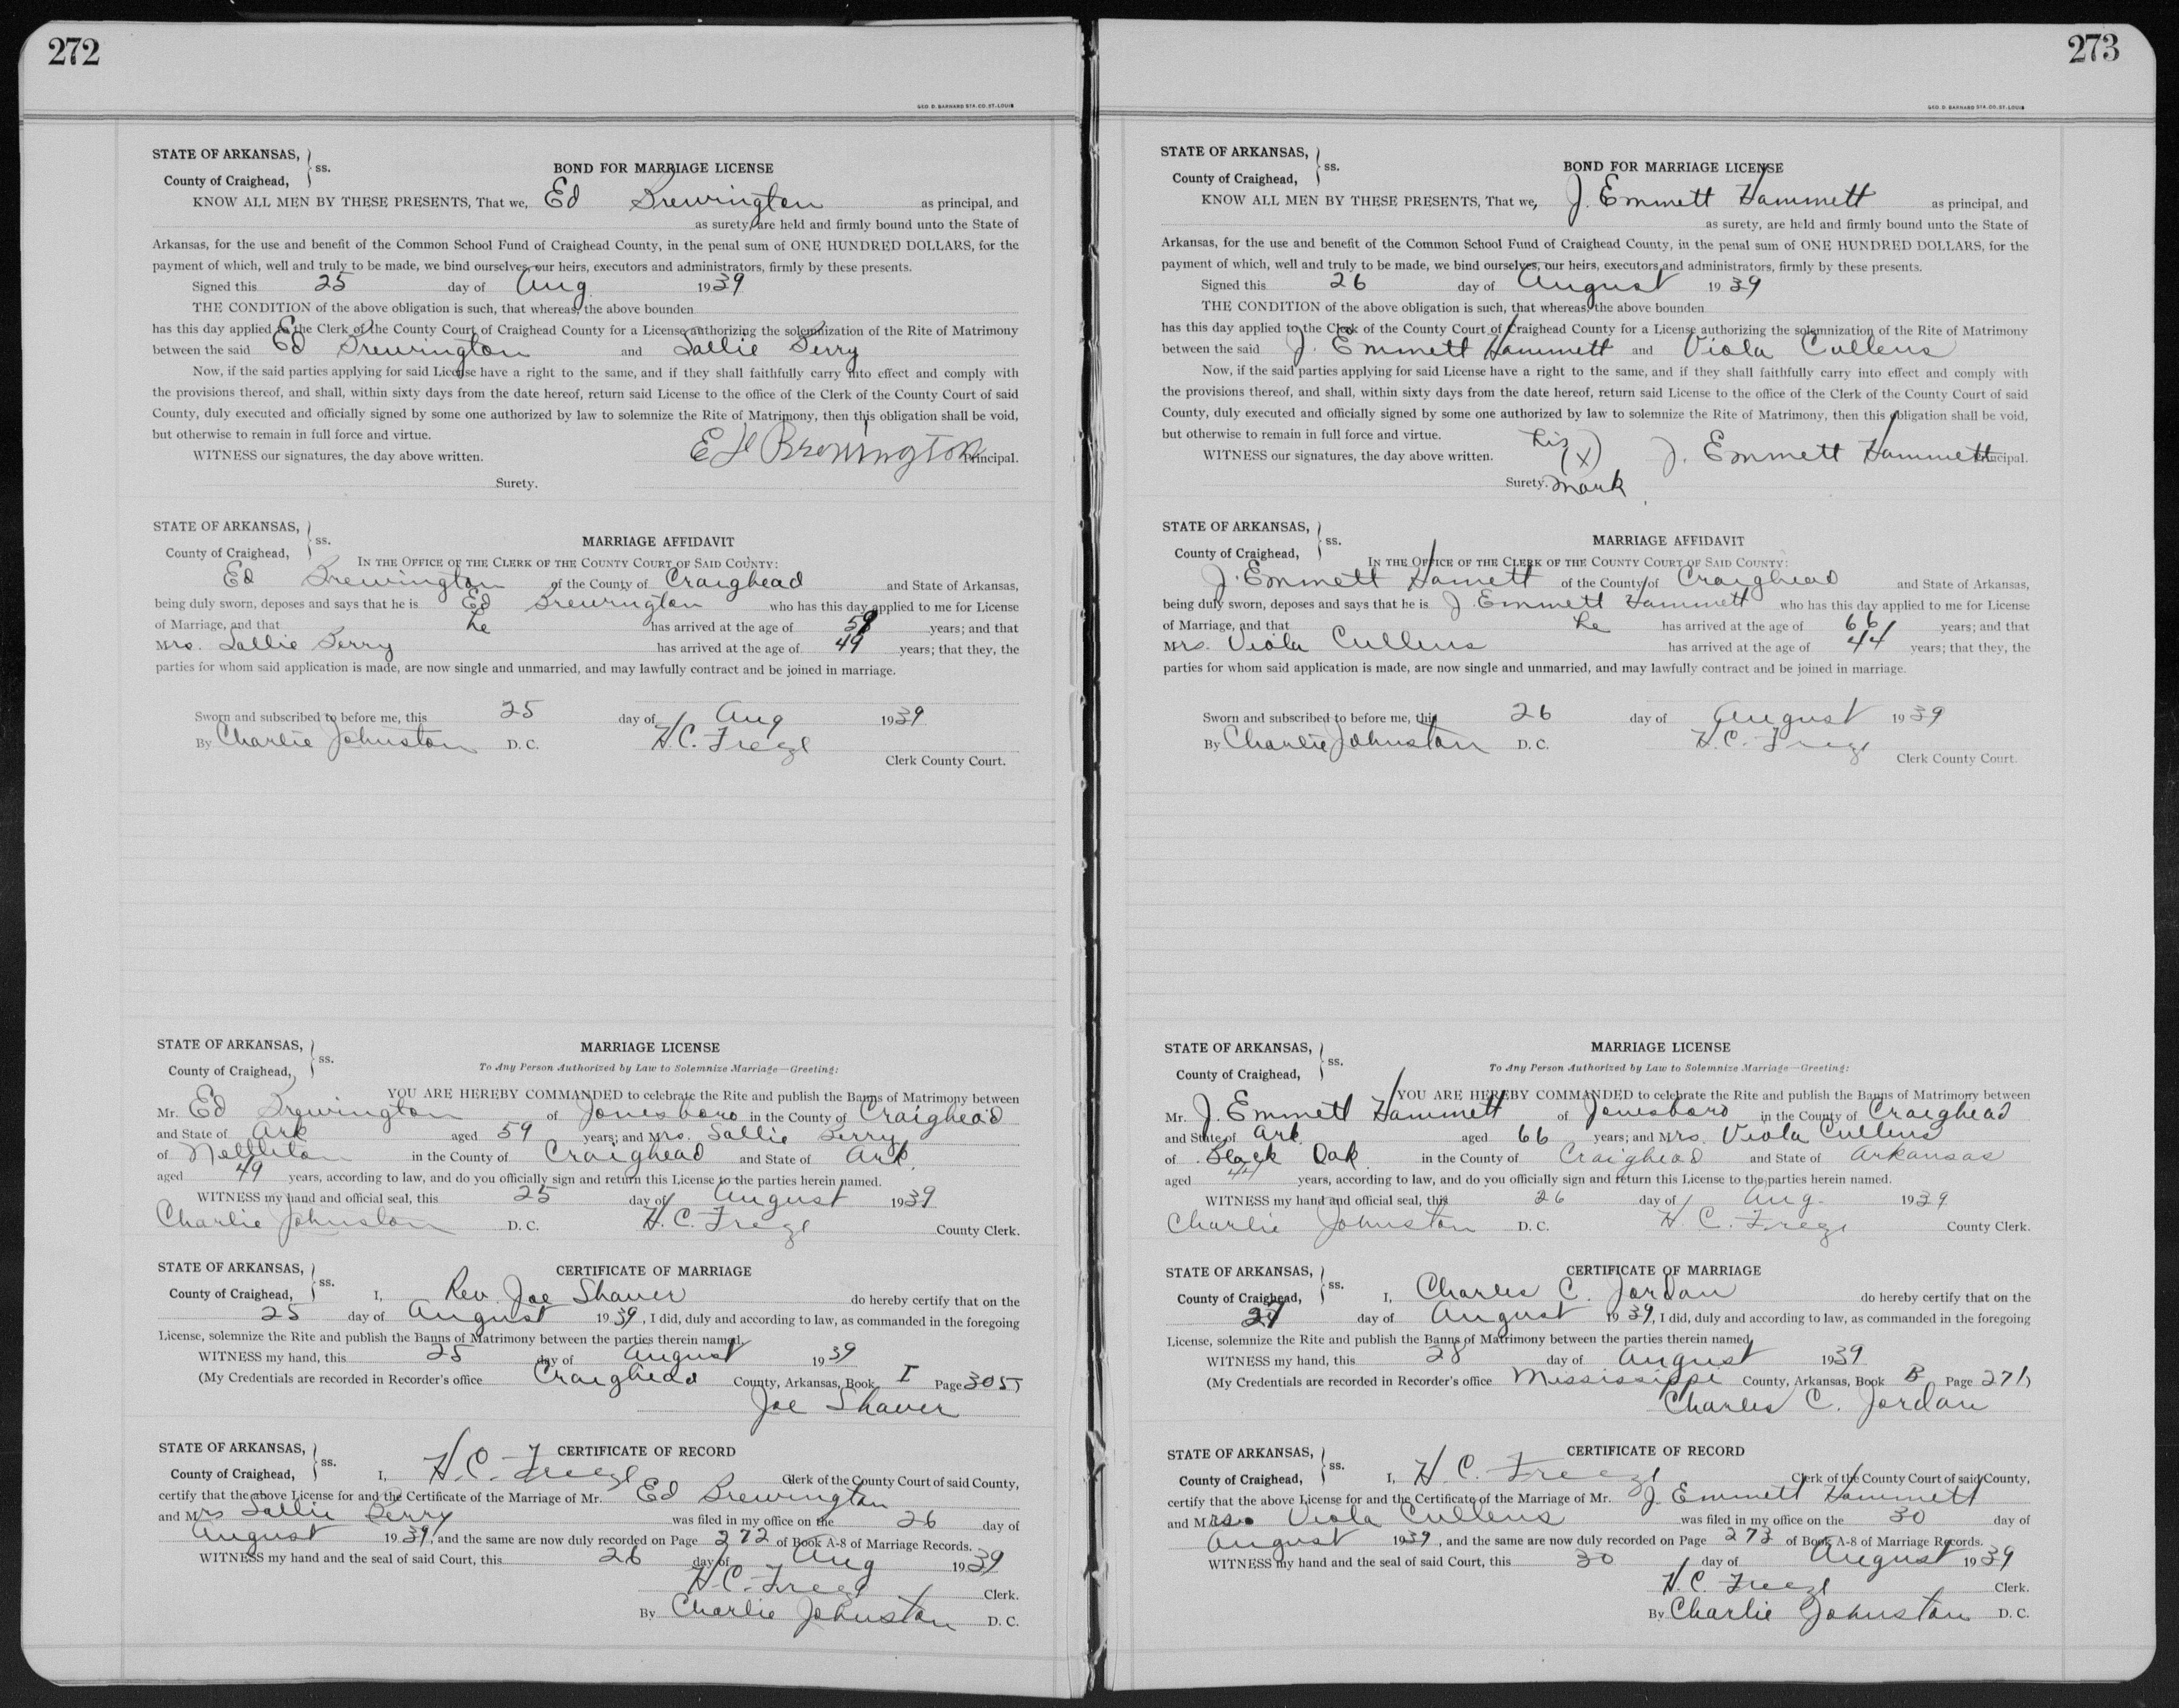 272
GEO. D. BARNARD STA. CO. ST. LOUIS
STATE OF ARKANSAS,
County of Craighead, ss.
BOND FOR MARRIAGE LICENSE
KNOW ALL MEN BY THESE PRESENTS, That we, Ed Brewington as principal, and
as surety, are held and firmly bound unto the State of
Arkansas, for the use and benefit of the Common School Fund of Craighead County, in the penal sum of ONE HUNDRED DOLLARS, for the
payment of which, well and truly to be made, we bind ourselves, our heirs, executors and administrators, firmly by these presents.
Signed this 25 day of Aug 1939
THE CONDITION of the above obligation is such, that whereas, the above bounden
has this day applied to the Clerk of the County Court of Craighead County for a License authorizing the solemnization of the Rite of Matrimony
between the said Ed Brewington and Sallie Berry
Now, if the said parties applying for said License have a right to the same, and if they shall faithfully carry into effect and comply with
the provisions thereof, and shall, within sixty days from the date hereof, return said License to the office of the Clerk of the County Court of said
County, duly executed and officially signed by some one authorized by law to solemnize the Rite of Matrimony, then this obligation shall be void,
but otherwise to remain in full force and virtue.
WITNESS our signatures, the day above written. Ed Brewington Principal.
Surety.
STATE OF ARKANSAS,
County of Craighead, ss.
MARRIAGE AFFIDAVIT
IN THE OFFICE OF THE CLERK OF THE COUNTY COURT OF SAID COUNTY:
Ed Brewington of the County of Craighead and State of Arkansas,
being duly sworn, deposes and says that he is Ed Brewington who has this day applied to me for License
of Marriage, and that he has arrived at the age of 59 years; and that
Mrs. Sallie Berry has arrived at the age of 49 years; that they, the
parties for whom said application is made, are now single and unmarried, and may lawfully contract and be joined in marriage.
Sworn and subscribed to before me, this 25 day of Aug 1939
By Charlie Johnston D. C. H. C. Freeze
Clerk County Court.
STATE OF ARKANSAS,
County of Craighead, ss.
MARRIAGE LICENSE
To Any Person Authorized by Law to Solemnize Marriage—Greeting:
YOU ARE HEREBY COMMANDED to celebrate the Rite and publish the Banns of Matrimony between
Mr. Ed Brewington of Jonesboro in the County of Craighead
and State of Ark aged 59 years; and Mrs. Sallie Berry
of Nettleton in the County of Craighead and State of Ark.
aged 49 years, according to law, and do you officially sign and return this License to the parties herein named.
WITNESS my hand and official seal, this 25 day of August 1939
Charlie Johnston D. C. H. C. Freeze County Clerk.
STATE OF ARKANSAS,
County of Craighead, ss.
CERTIFICATE OF MARRIAGE
I, Rev. Joe Shaver do hereby certify that on the
25 day of August 1939, I did, duly and according to law, as commanded in the foregoing
License, solemnize the Rite and publish the Banns of Matrimony between the parties therein named.
WITNESS my hand, this 25 day of August 1939
(My Credentials are recorded in Recorder's office Craighead County, Arkansas, Book I Page 305)
Joe Shaver
STATE OF ARKANSAS,
County of Craighead, ss.
CERTIFICATE OF RECORD
I, H. C. Freeze Clerk of the County Court of said County,
certify that the above License for and the Certificate of the Marriage of Mr. Ed Brewington
and Mrs Sallie Berry was filed in my office on the 26 day of
August 1939, and the same are now duly recorded on Page 272 of Book A-8 of Marriage Records.
WITNESS my hand and the seal of said Court, this 26 day of Aug 1939
H. C. Freeze Clerk.
By Charlie Johnston D. C.
273
GEO. D. BARNARD STA. CO. ST. LOUIS
STATE OF ARKANSAS,
County of Craighead, ss.
BOND FOR MARRIAGE LICENSE
KNOW ALL MEN BY THESE PRESENTS, That we, J. Emmett Hammett as principal, and
as surety, are held and firmly bound unto the State of
Arkansas, for the use and benefit of the Common School Fund of Craighead County, in the penal sum of ONE HUNDRED DOLLARS, for the
payment of which, well and truly to be made, we bind ourselves, our heirs, executors and administrators, firmly by these presents.
Signed this 26 day of August 1939
THE CONDITION of the above obligation is such, that whereas, the above bounden
has this day applied to the Clerk of the County Court of Craighead County for a License authorizing the solemnization of the Rite of Matrimony
between the said J. Emmett Hammett and Viola Cullens
Now, if the said parties applying for said License have a right to the same, and if they shall faithfully carry into effect and comply with
the provisions thereof, and shall, within sixty days from the date hereof, return said License to the office of the Clerk of the County Court of said
County, duly executed and officially signed by some one authorized by law to solemnize the Rite of Matrimony, then this obligation shall be void,
but otherwise to remain in full force and virtue. his
WITNESS our signatures, the day above written. (X) J. Emmett Hammett Principal.
Surety. mark
STATE OF ARKANSAS,
County of Craighead, ss.
MARRIAGE AFFIDAVIT
IN THE OFFICE OF THE CLERK OF THE COUNTY COURT OF SAID COUNTY:
J. Emmett Hamett of the County of Craighead and State of Arkansas,
being duly sworn, deposes and says that he is J. Emmett Hammett who has this day applied to me for License
of Marriage, and that he has arrived at the age of 66 years; and that
Mrs. Viola Cullens has arrived at the age of 44 years; that they, the
parties for whom said application is made, are now single and unmarried, and may lawfully contract and be joined in marriage.
Sworn and subscribed to before me, this 26 day of August 1939
By Charlie Johnston D. C. H. C. Freeze
Clerk County Court.
STATE OF ARKANSAS,
County of Craighead, ss.
MARRIAGE LICENSE
To Any Person Authorized by Law to Solemnize Marriage—Greeting:
YOU ARE HEREBY COMMANDED to celebrate the Rite and publish the Banns of Matrimony between
Mr. J. Emmett Hammett of Jonesboro in the County of Craighead
and State of Ark. aged 66 years; and Mrs. Viola Cullens
of Black Oak in the County of Craighead and State of Arkansas
aged 44 years, according to law, and do you officially sign and return this License to the parties herein named.
WITNESS my hand and official seal, this 26 day of Aug. 1939
Charlie Johnston D. C. H. C. Freeze County Clerk.
STATE OF ARKANSAS,
County of Craighead, ss.
CERTIFICATE OF MARRIAGE
I, Charles C. Jordan do hereby certify that on the
27 day of August 1939, I did, duly and according to law, as commanded in the foregoing
License, solemnize the Rite and publish the Banns of Matrimony between the parties therein named.
WITNESS my hand, this 28 day of August 1939
(My Credentials are recorded in Recorder's office Mississippi County, Arkansas, Book B Page 271)
Charles C. Jordan
STATE OF ARKANSAS,
County of Craighead, ss.
CERTIFICATE OF RECORD
I, H. C. Freeze Clerk of the County Court of said County,
certify that the above License for and the Certificate of the Marriage of Mr. J. Emmett Hammett
and Mrs. Viola Cullens was filed in my office on the 30 day of
August 1939, and the same are now duly recorded on Page 273 of Book A-8 of Marriage Records.
WITNESS my hand and the seal of said Court, this 30 day of August 1939
H. C. Freeze Clerk.
By Charlie Johnston D. C.